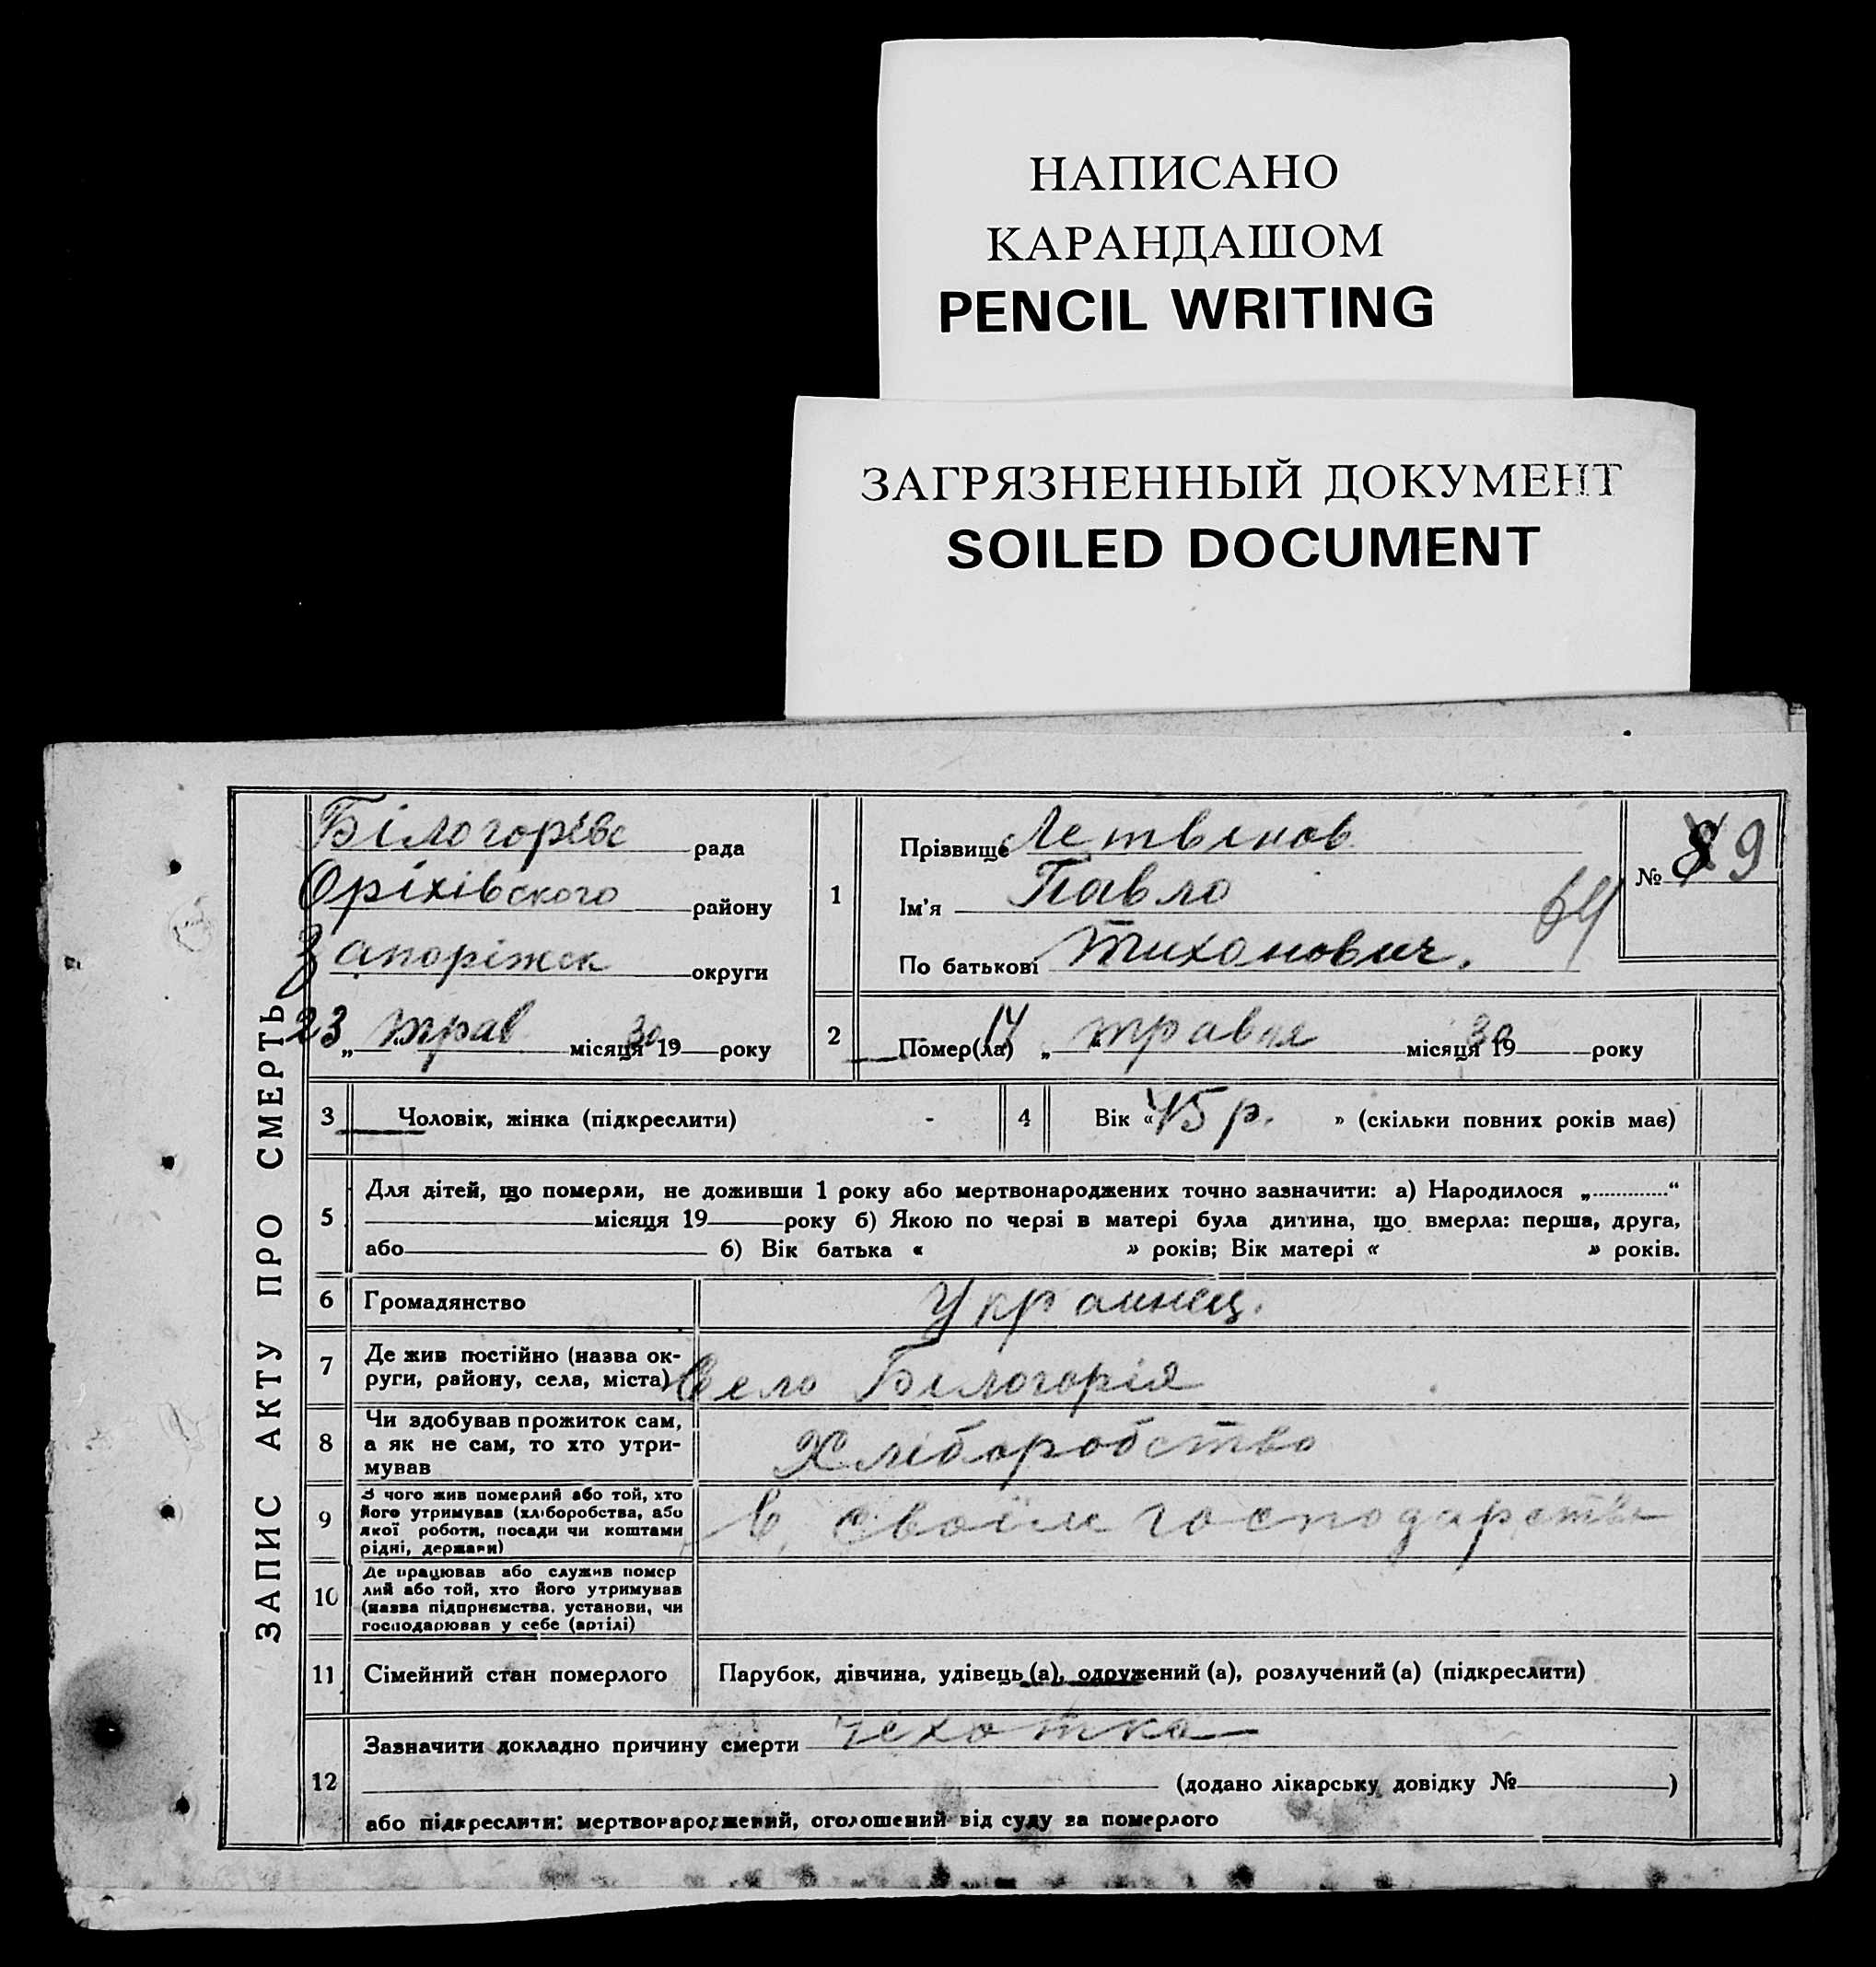 НАПИСАНО
КАРАНДАШОМ
PENCIL WRITING
ЗАГРЯЗНЕННЫЙ ДОКУМЕНТ
SOILED DOCUMENT
ЗАПИС АКТУ ПРО СМЕРТЬ
Білогорівс рада
Оріхівского району
Запоріжск округи
23 „ трав місяця 1930 року
1
Прізвище Летвінов
Ім'я Павло
По батькові Тихонович.
64
№ 89
2
Помер(ла) „ 14 травня місяця 1930 року
3 Чоловік, жінка (підкреслити)
4 Вік « 45 р. » (скільки повних років має)
5
Для дітей, що померли, не доживши 1 року або мертвонароджених точно зазначити: а) Народилося „ “
місяця 19 року б) Якою по черзі в матері була дитина, що вмерла: перша, друга,
або б) Вік батька « » років; Вік матері « » років.
6 Громадянство Украинец.
7
Де жив постійно (назва ок-
руги, району, села, міста) Село Білогорія
8
Чи здобував прожиток сам,
а як не сам, то хто утри-
мував
Хліборобство
9
З чого жив померлий або той, хто
його утримував (хліборобства, або
якої роботи, посади чи коштами
рідні, держави)
в своїм господарстві
10
Де працював або служив помер
лий або той, хто його утримував
(назва підприємства, установи, чи
господарював у себе (артілі)
11 Сімейний стан померлого Парубок, дівчина, удівець (а), одружений (а), розлучений (а) (підкреслити)
12
Зазначити докладно причину смерти чехотка
(додано лікарську довідку № )
або підкреслити: мертвонароджений, оголошений від суду за померлого